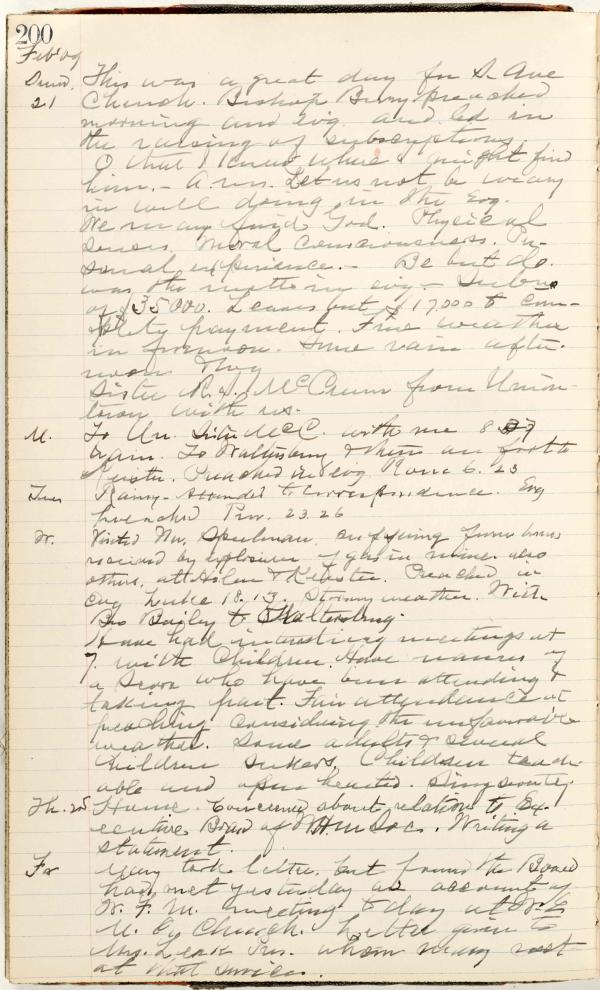 200
Feb '09
Sund. This was a great day for S. Ave
21 Church. Bishop Berry preached
morning and evg. and led in
the raising of subscriptions
O that I knew where I might find
him. - A.M. Let us not be weary
in well doing in the Evg.
We may find God. Physical
senses. Moral Consciousness. Per-
sonal experience. - Be but do.
was the motto in evg -
of $35000. Leaves but $17,000 to com-
plete payment. Fine weather
in forenoon. Some rain after-
noon & evg
Sister McCrum from Union-
town with us.
M. To Un. Sister McC. with me 8
a.m. To Waltersburg &
Preached in evg Rom 6. 23
Tues Rainy - Attended to Correspondence. Evg
preached Prov. 23. 26
W. Visited Wm. Speelman, suffering from burns
received by explosion of gas in mine. Also
others, at & Keister. Preached in
evg Luke 18. 13. Stormy weather. With
Bro Bailey to Waltersburg.
Have had interesting meetings at
7. with Children. Have names of
a score who have been attending &
taking part. Fair attendance at
preaching considering the unfavorable
weather. Some adults & several
children seekers. Children teach-
able and open hearted. Sing sweetly.
Th. 25 Home. Concerned about relation to Ex-
ecutive Board of W.H.M. Soc. Writing a
statement.
Fr Mary took letter, but found the Board
had met yesterday on account of
W. F. M. meeting to day at
M. E. Church. Letter given to
Mrs. Pres. whom Mary met
at that service.